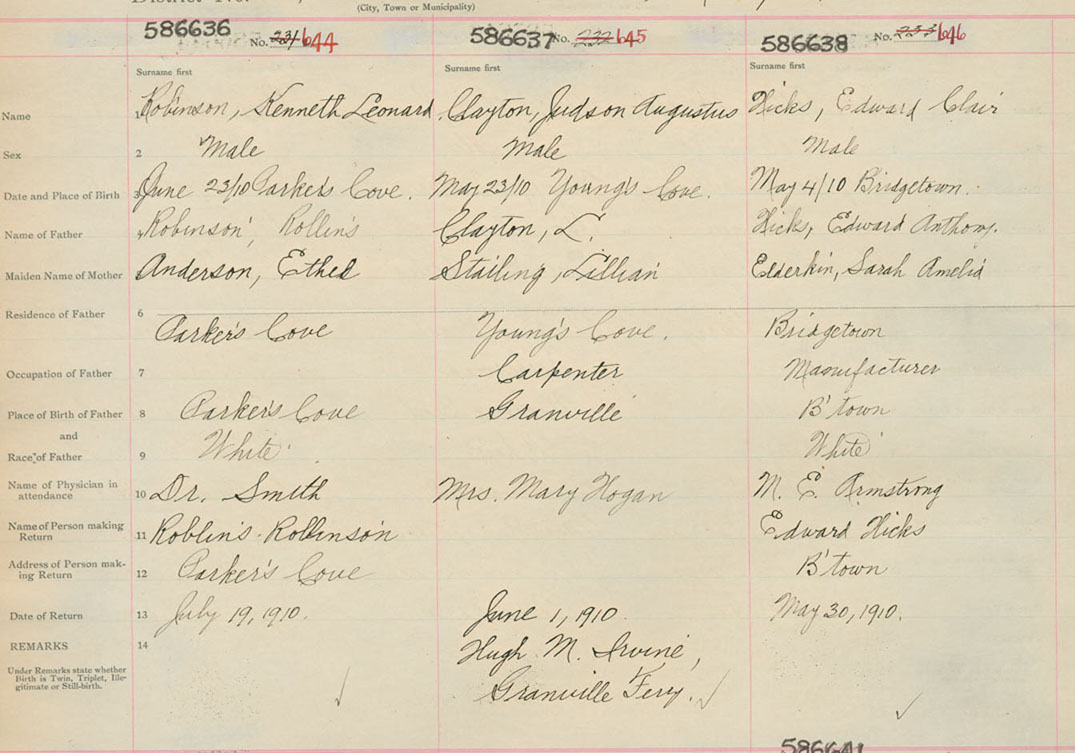 (City, Town or Municipality)
586636 No. 231 644 586637 No. 232 645 586638 No. 233 646
Surname first Surname first Surname first
Name 1 Robinson, Kenneth Leonard Clayton, Judson Augustus Hicks, Edward Clair
Sex 2 Male Male Male
Date and Place of Birth 3 June 23/10 Parker's Cove. May 23/10 Young's Cove. May 4/10 Bridgetown.
Name of Father 4 Robinson, Rollins Clayton, L. Hicks, Edward Anthony.
Maiden Name of Mother Anderson, Ethel Stailing, Lillian Elderkin, Sarah Amelia
Residence of Father 6 Parker's Cove Young's Cove. Bridgetown
Occupation of Father 7 Carpenter Manufacturer
Place of Birth of Father 8 Parker's Cove Granville B'town
and
Race of Father 9 White White
Name of Physician in
attendance 10 Dr. Smith Mrs. Mary Hogan M. E. Armstrong
Name of Person making
Return 11 Roblins Rollinson Edward Hicks
Address of Person mak-
ing Return 12 Parker's Cove B'town
Date of Return 13 July 19, 1910. June 1, 1910. May 30, 1910.
REMARKS 14 Hugh M. Irvine,
Under Remarks state whether
Birth is Twin, Triplet, Ille-
gitimate or Still-birth.
Granville Ferry.
586641